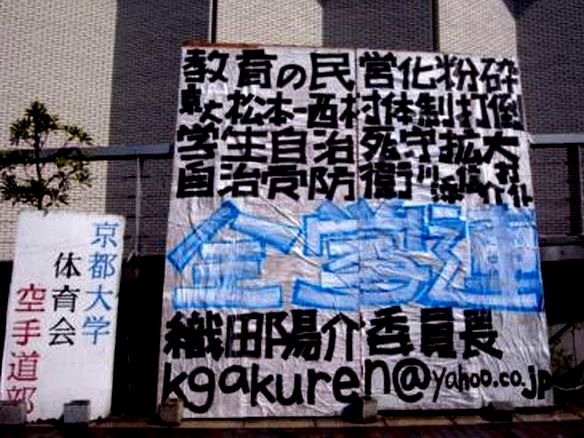 教育の民営化粉砕
京大松本一西村体制打倒
学生自治死守拡大
自治寮防衛川添信介打倒
全学連
織田陽介委員長
kgakuren@yahoo.co.jp
京都大学
体育会
空手道部